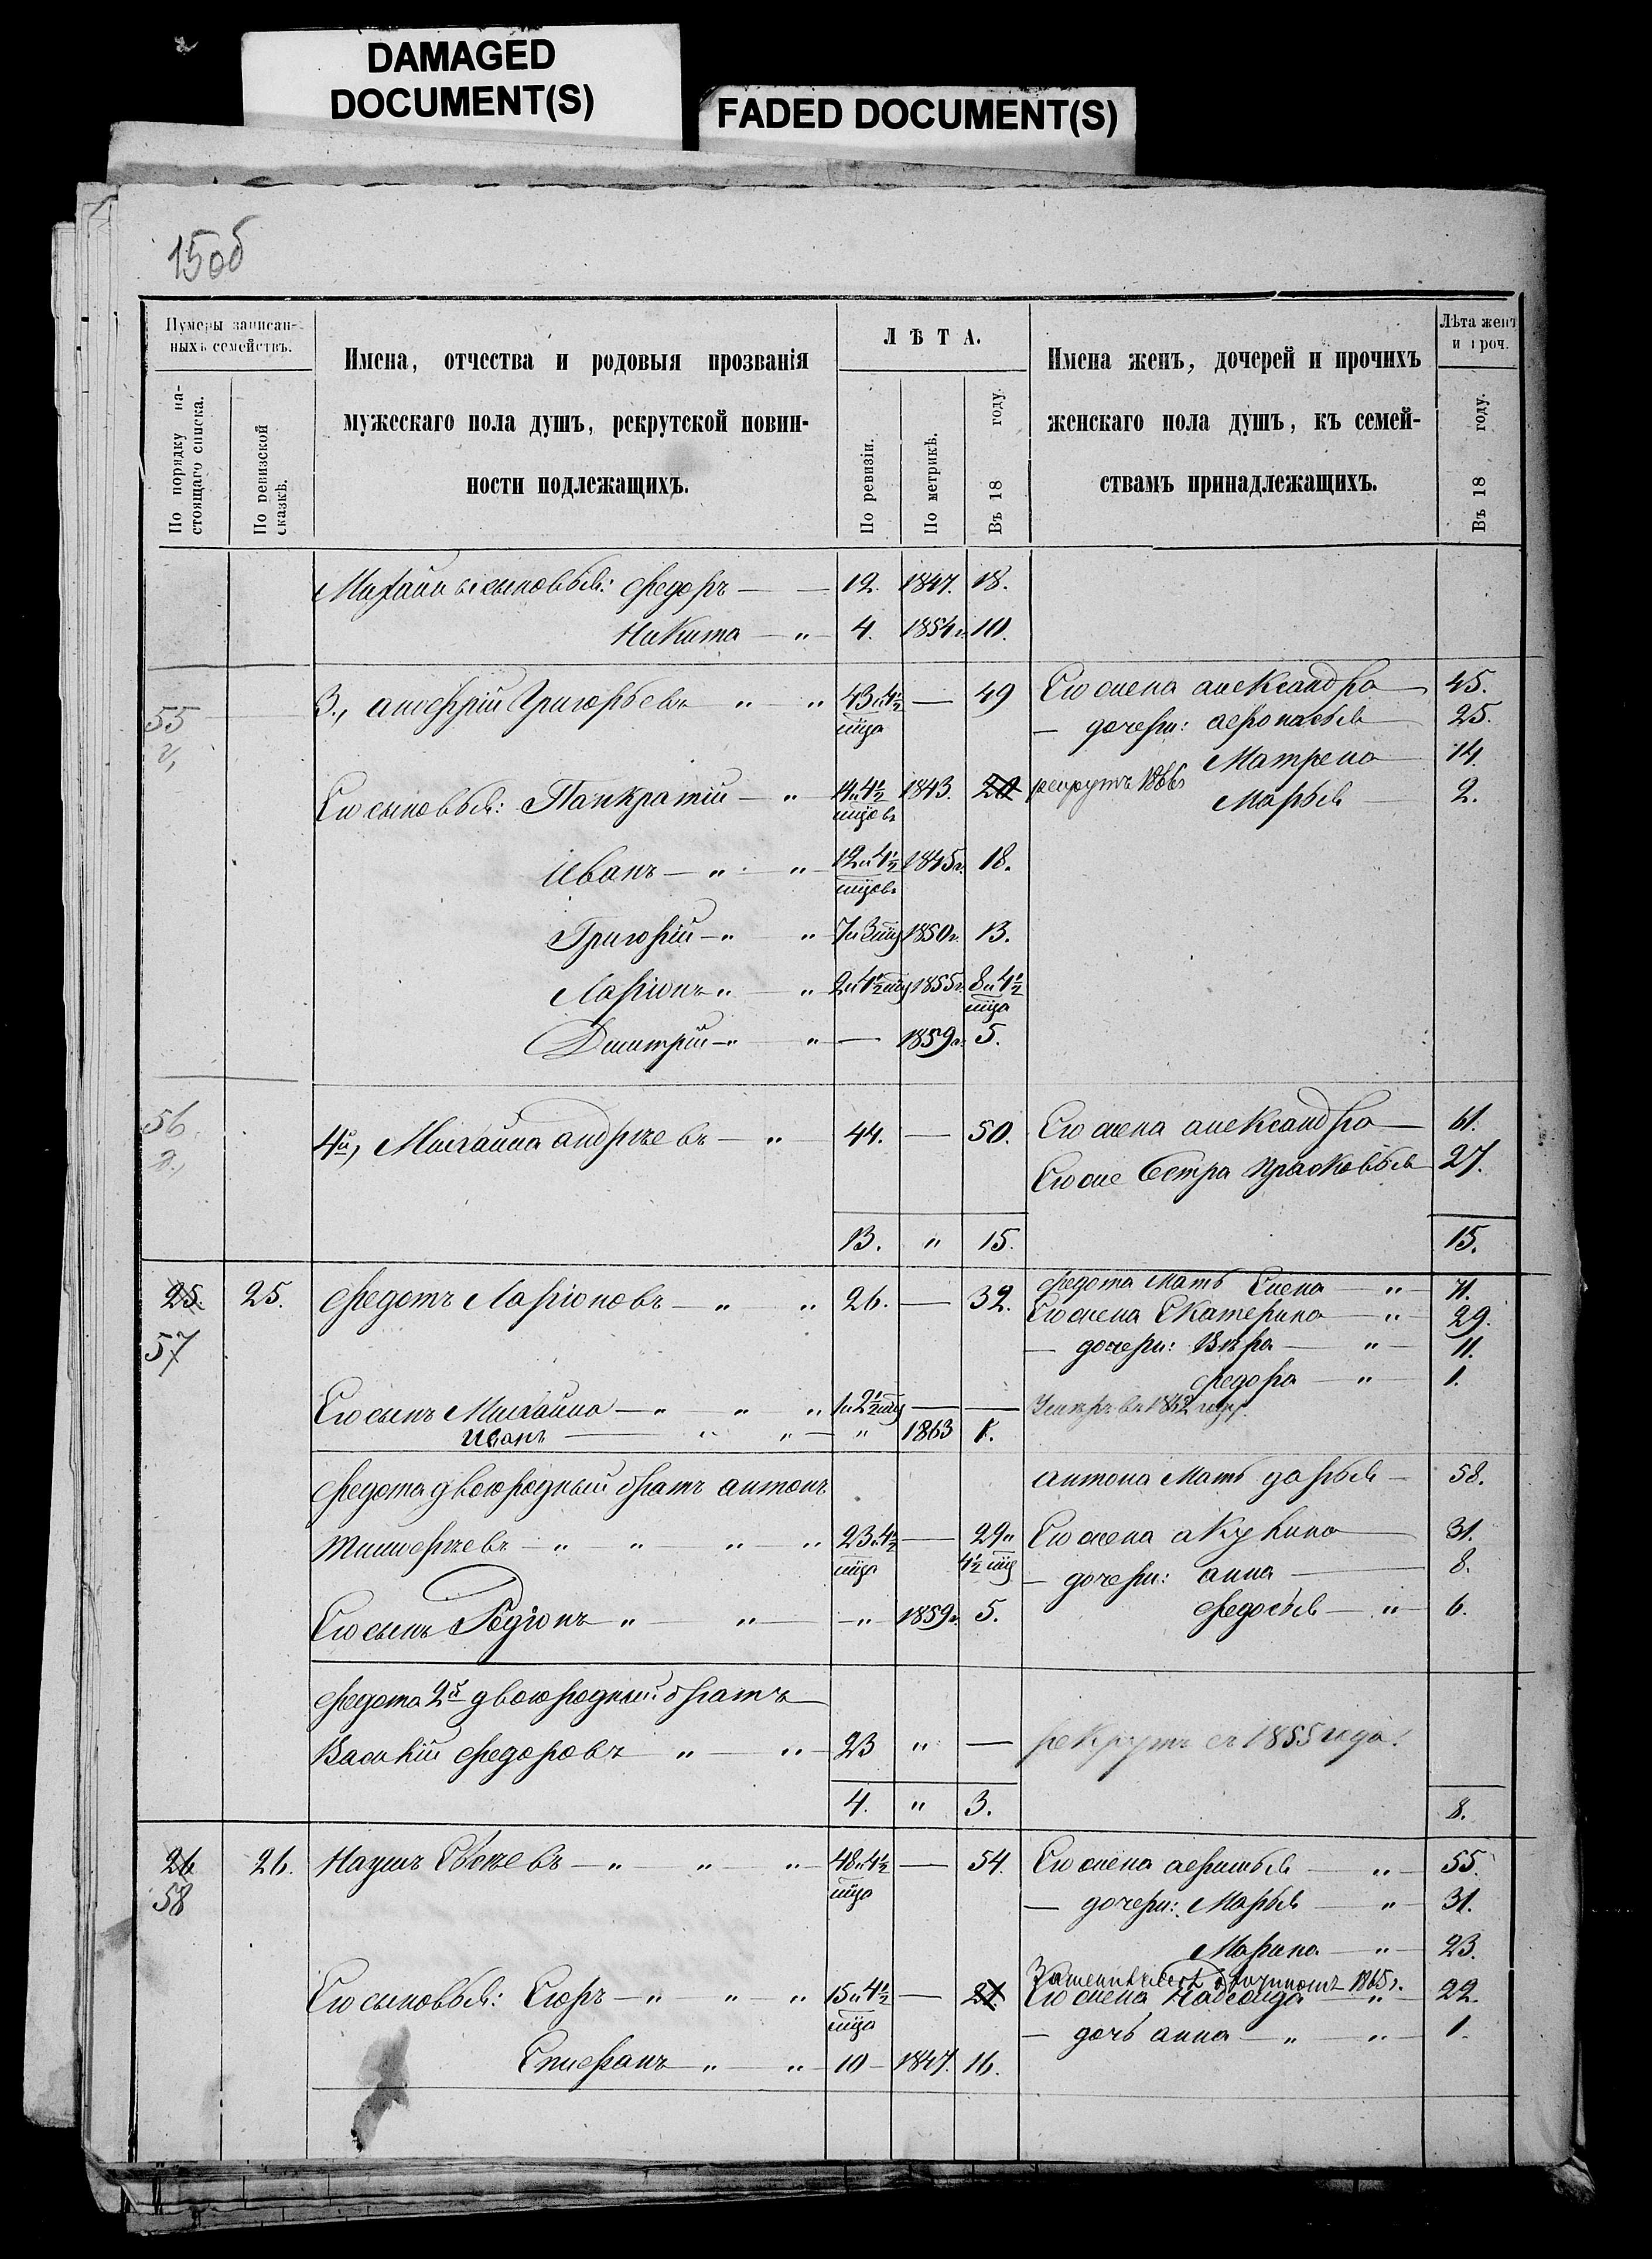 DAMAGED
DOCUMENT(S)
FADED DOCUMENT(S)
15об
Нумеры записан-
ныхъ семействъ.
По порядку на-
стоящаго списка.
По ревизской
сказкѣ.
Имена, отчества и родовыя прозванія
мужескаго пола душъ, рекрутской повин-
ности подлежащихъ.
ЛѢТА.
По ревизіи.
По метрикѣ.
Въ 18 году.
Имена женъ, дочерей и прочихъ
женскаго пола душъ, къ семей-
ствамъ принадлежащихъ.
Лѣта женъ
и проч.
Въ 18 году.
Михайлы сыновья: Федоръ — — 12. 1847. 18.
Никита — „ 4. 1854г. 10.
55 3., Григорьевъ „ „ 43 и 4½ мца — 49 Его жена александра — 45.
— дочери: афонасья — 25.
Матрена — 14.
Его сыновья: Панкратій — „ и 4½ мцовъ 1843. 20 рекрутъ 1866г Марья — 2.
Иванъ — „ „ 12 и 4½ мцовъ 1845г. 18.
Григорій — „ „ 7 и 3 мцъ 1850г. 13.
Ларіонъ „ „ 2 и 4½ мцъ 1855г. 8 и 4½ мца
Дмитрій — „ „ — 1859г. 5.
56 4й, Михайла андреевъ — „ 44. — 50. Его жена александра — 61.
Его же Сестра Прасковья 27.
13. „ 15. 15.
25. 25. Федотъ Ларіоновъ — „ „ 26. — 32. Федота Мать Елена — „ — 71.
57 Его жена Екатерина — „ 29.
— дочери: Вѣра — „ — 11.
Федора — „ — 1.
Его сынъ Михайла — „ „ „ 1 и 2½ мцъ — — Умеръ въ 1862 году.
Иванъ — „ „ — „ 1863 1.
Федота двоюродный братъ антонъ антона Мать дарья — 58.
Тимофеевъ — „ „ „ „ 23 и 4½ мца — 29 и 4½ мцъ Его жена акулина — 31.
— дочери: анна — 8.
Его сынъ Родіонъ „ — „ — — „ 1859г. 5. Федосья — „ — 6.
Федота 2й двоюродный братъ
Василій Федоровъ „ — „ — 23 „ — рекрутъ съ 1855 года.
4. „ 3. 8.
26 26. Наумъ Евсѣевъ — „ — „ — „ 48 и 4½ мца — 54. Его жена афимья — „ — 55.
58 — дочери: Марья — „ — 31.
Марина — „ — 23.
1865г.
Его сыновья: Егоръ — „ — „ „ 15 и 4½ мца — 21. Его жена — „ — 22.
— дочь анна — „ — „ — 1.
Епифанъ — „ „ 10 — 1847. 16.